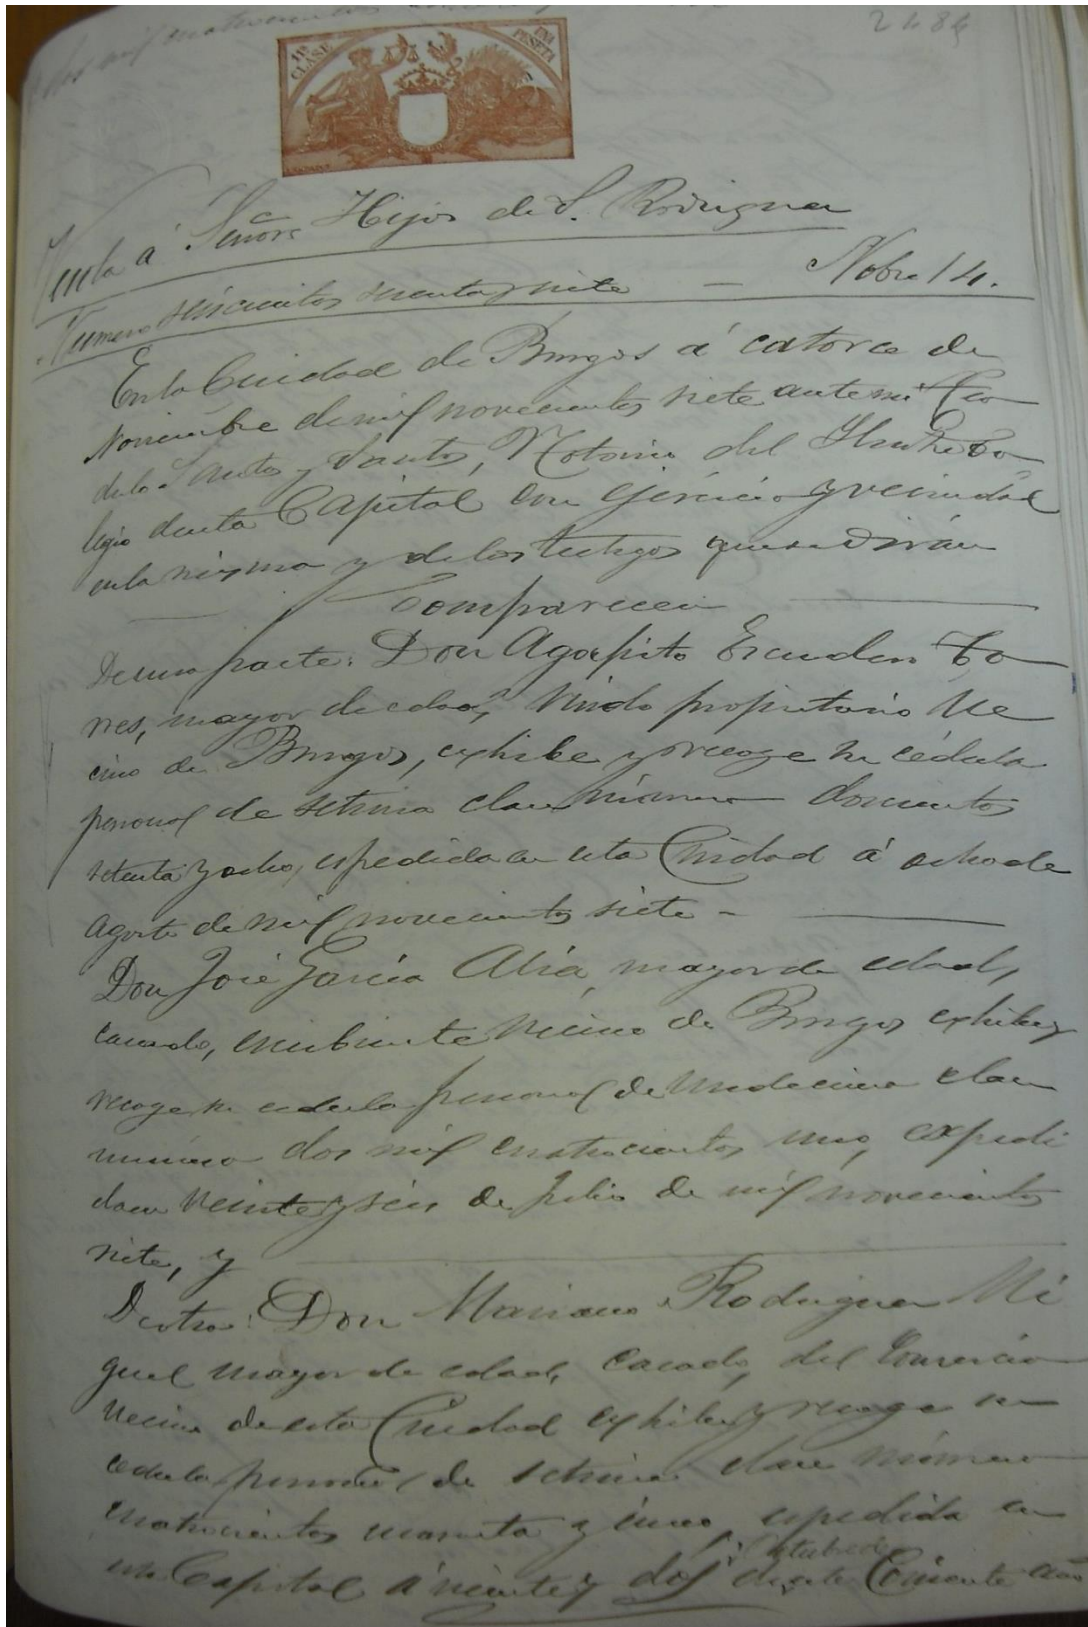 2484
11ª CLASE
UNA PESETA
Venta á Señores Hijos de S. Rodriguez
Numero seiscientos sesenta y siete — Nobre 14.
En la Ciudad de Burgos á catorce de
Noviembre de mil novecientos siete ante mi
de la Santos y Santos, Notario del Ilustre Co
legio de esta Capital con ejercicio y vecindad
en la misma y de los testigos que se dirán
Comparecen
De una parte: Don Agapito Escudero Co
nes, mayor de edad, Viudo propietario Ve
cino de Burgos, exhibe y recoge su cédula
personal de setima clase número doscientos
setenta y ocho, espedida en esta Ciudad á ocho de
Agosto de mil novecientos siete —
Don José García Abia, mayor de edad,
casado, escribiente vecino de Burgos exhibe y
recoge su cedula personal de undecima clase
número dos mil cuatrocientos uno, expedi
da en veinte y seis de Julio de mil novecientos
siete, y
De otra: Don Mariano Rodriguez Mi
guel mayor de edad, casado, del Comercio
vecino de esta Ciudad exhibe y recoge su
cedula personal de setima clase número
cuatrocientos noventa y cinco, espedida en
esta Capital á veinte y dos de Octubre del Corriente año